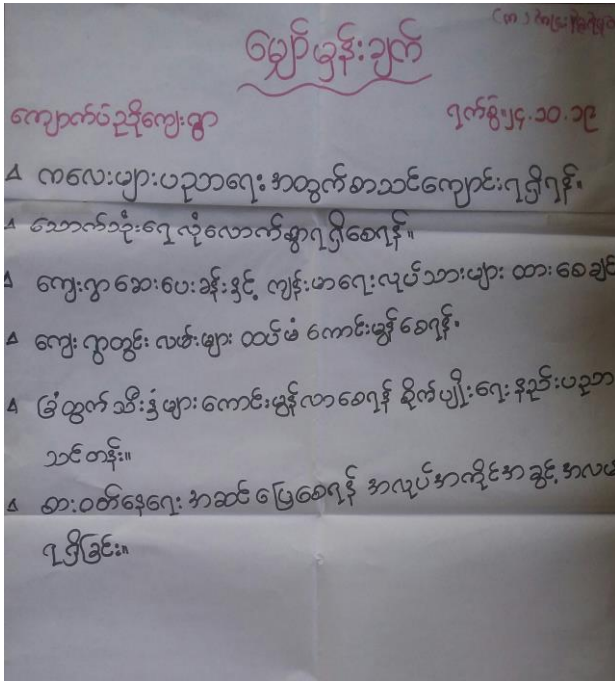 မျှော်မှန်းချက်
ကျောက်ပံညိုကျေးရွာ
ရက်စွဲ၊၂၄.၁၀.၁၉
ကလေးများပညာရေးအတွက်စာသင်ကျောင်းရရှိရန်။
သောက်သုံးရေလုံလောက်စွာရရှိစေရန်။
ကျေးရွာဆေးပေးခန်းနှင့် ကျန်းမာရေးလုပ်သားများ ထားစေချင်
ကျေးရွာတွင်း လမ်းများ ထပ်မံ ကောင်းမွန်စေရန်။
ခြံထွက်သီးနှံများကောင်းမွန်လာစေရန် စိုက်ပျိုးရေးနည်းပညာ
သင်တန်း။
စားဝတ်နေရေးအဆင်ပြေစေရန် အလုပ်အကိုင်အခွင့်အလမ်း
ရရှိခြင်း။